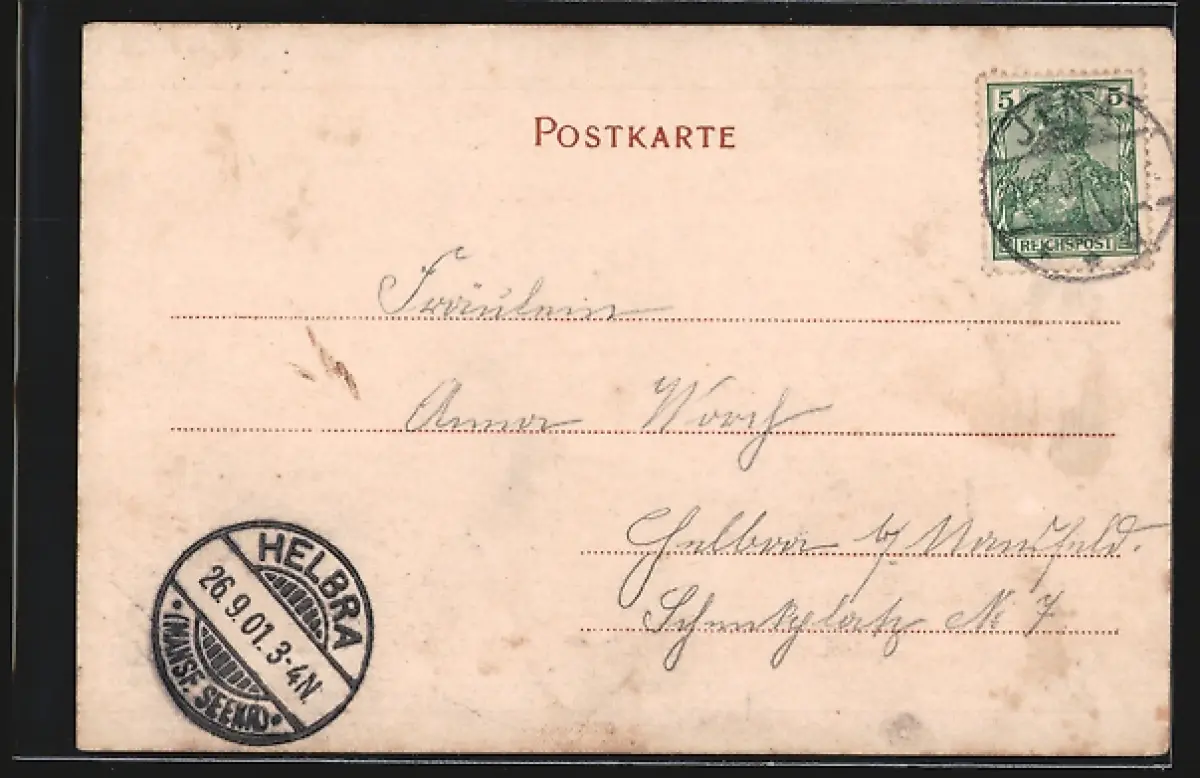 5 5
REICHSPOST
POSTKARTE
Fräulein
Anna Worch
Helbra b/ Mansfeld.
Schenkplatz № 7
HELBRA
26.9.01.3-4N.
(MANSF. SEEKR.)